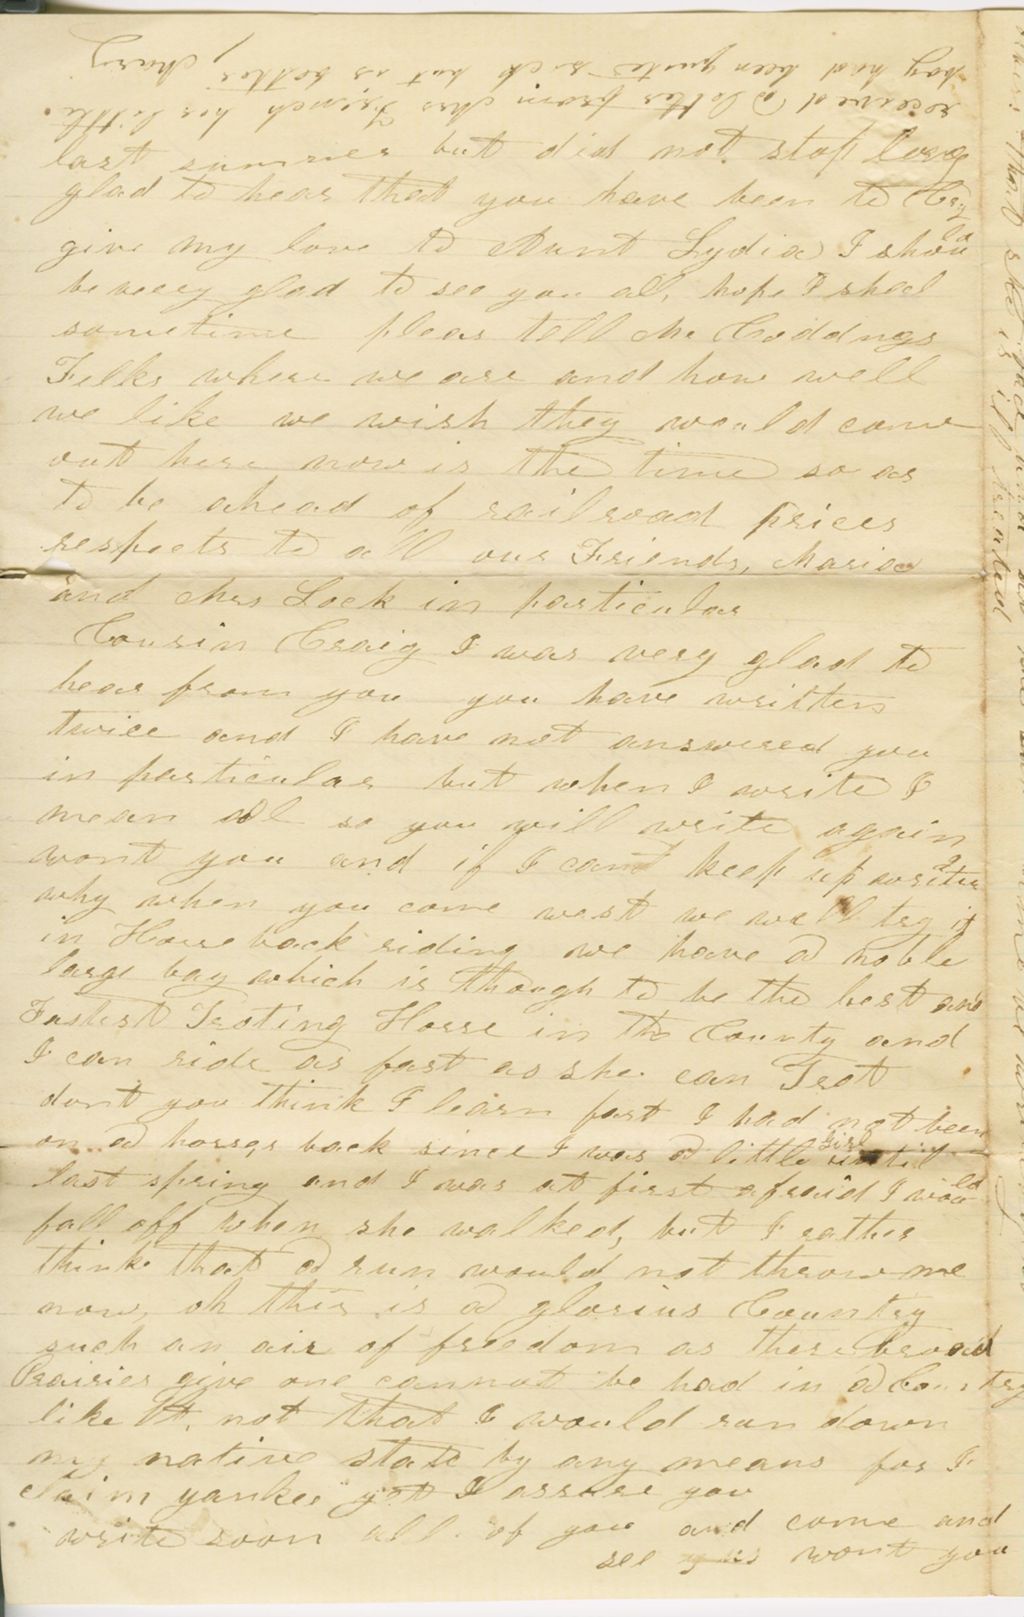 received a letter from Mrs French her little
boy had been quite sick but is better, Mary
last summer but did not stop long
glad to hear that you have been to
give my love to Aunt Lydia I should
be very glad to see you all, hope I shal
sometime pleas tell Mr Coddngs
Folks where we are and how well
we like we wish they would come
out here now is the time so as
to be ahead of railroad prices
respects to all our Friends, Maria
and Mrs Lock in particular
Cousin Craig I was very glad to
hear from you you have written
twice and I have not answered you
in particular but when I write I
mean all so you will write again
wont you and if I cant keep up writing
why when you come west we will try it
in Horseback riding we have a noble
large bay which is though to be the best and
Fastest Troting Horse in the County and
I can ride as fast as she can Trot
dont you think I learn fast I had not been
on a horses back since I was a little girl until
last spring and I was at first afraid I would
fall off when she walked, but I rather
think that a run would not throw me
now, oh this is a glorius Country
such an air of freedom as these broad
Prairies give one cannot be had in a Country
like Vt, not that I would run down
my native state by any means for I
claim yankee yet I assure you
write soon all of you and come and
see us wont you